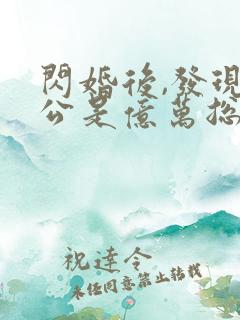 閃婚後,發現
公是億萬总
祝達令
未任同意禁止转载